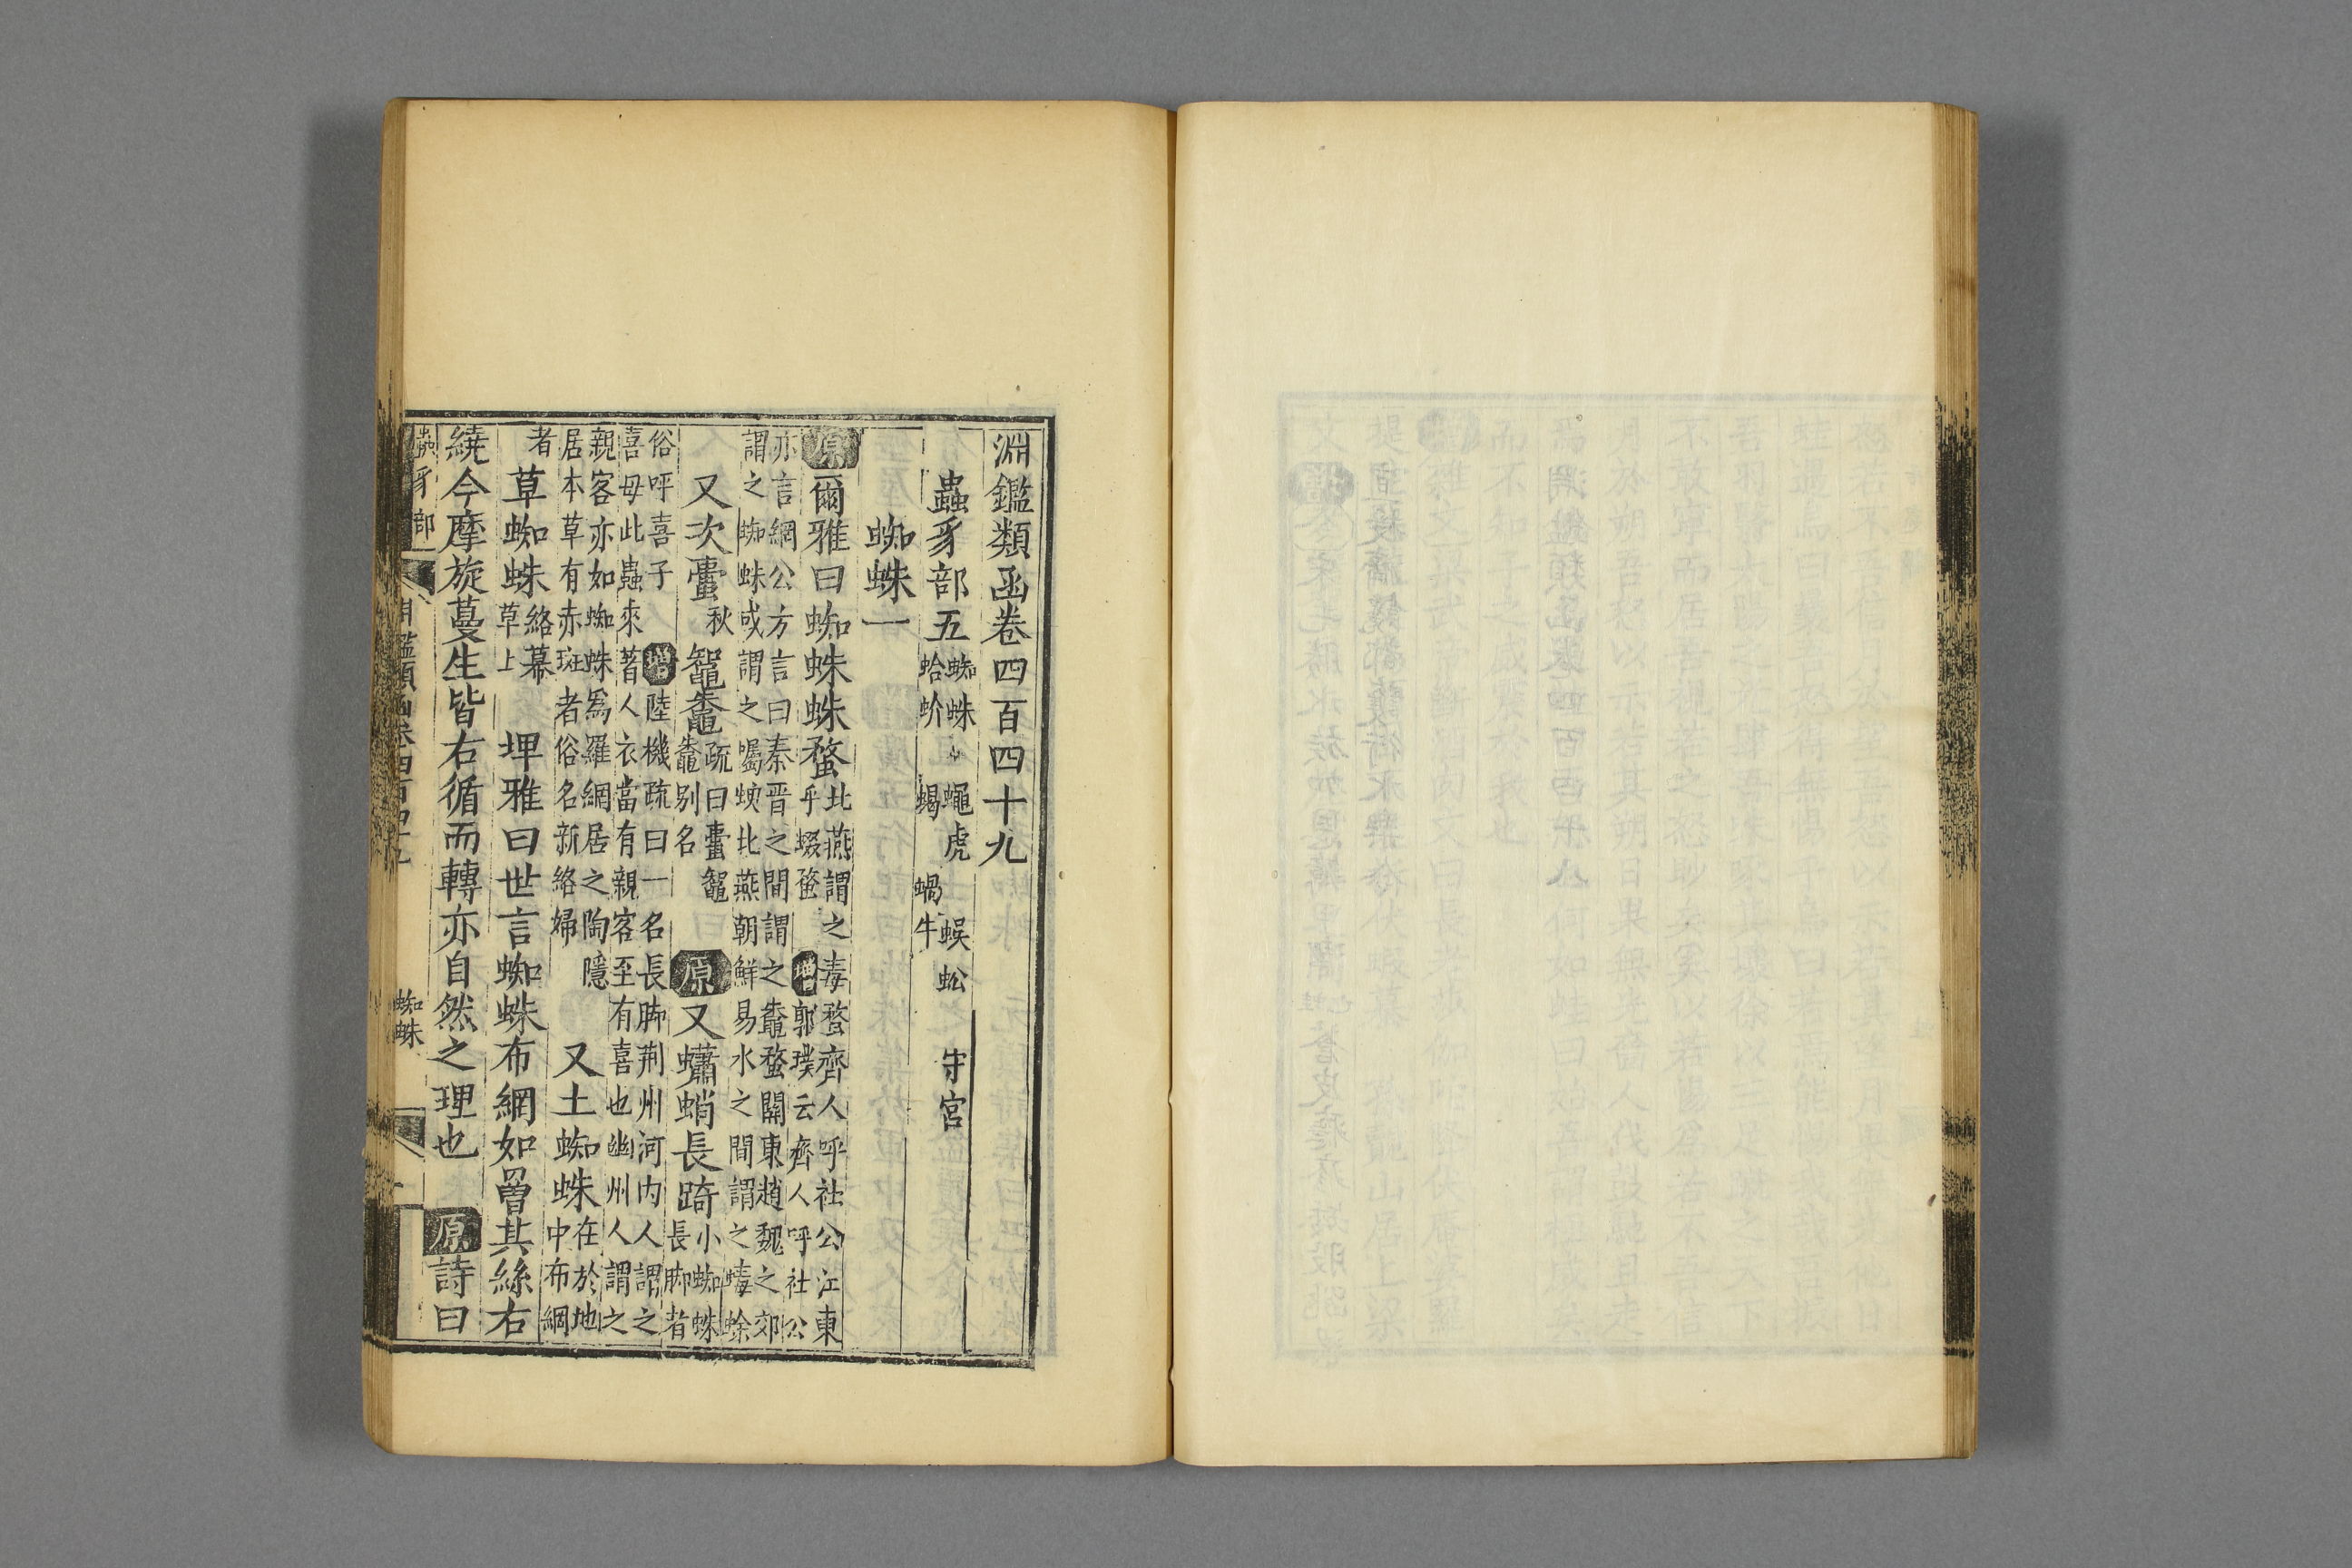 淵鑑類函卷四百四十九
蟲豸部五 蜘蛛 蠅虎 蜈蚣 守宮 蛤蚧 蝎 蝸牛
蜘蛛一
原 爾雅曰蜘蛛蛛蝥 北燕謂之毒蝥齊人呼社公江東乎蝃蝥 增 郭璞云齊人呼社公
亦言網公方言曰秦晉之間謂之鼄蝥關東趙魏之郊謂之蜘蛛或謂之蠾蝓北燕朝鮮易水之間謂之蝳蜍
又次蟗 秋 鼅鼄 疏曰蟗鼅鼄別名 原 又蠨蛸長踦 小蜘蛛長脚者
俗呼喜子 增 陸機疏曰一名長脚荆州河内人謂之喜母此蟲來著人衣當有親客至有喜也幽州人謂之
親客亦如蜘蛛爲羅網居之陶隱居本草有赤斑者俗名新絡婦 又土蜘蛛 在於地中布網
者 草蜘蛛 絡幕草上 埤雅曰世言蜘蛛布網如罾其絲右
繞今摩旋蔓生皆右循而轉亦自然之理也 原 詩曰
蟲豸部 淵鑑類函卷四百四十九 蜘蛛